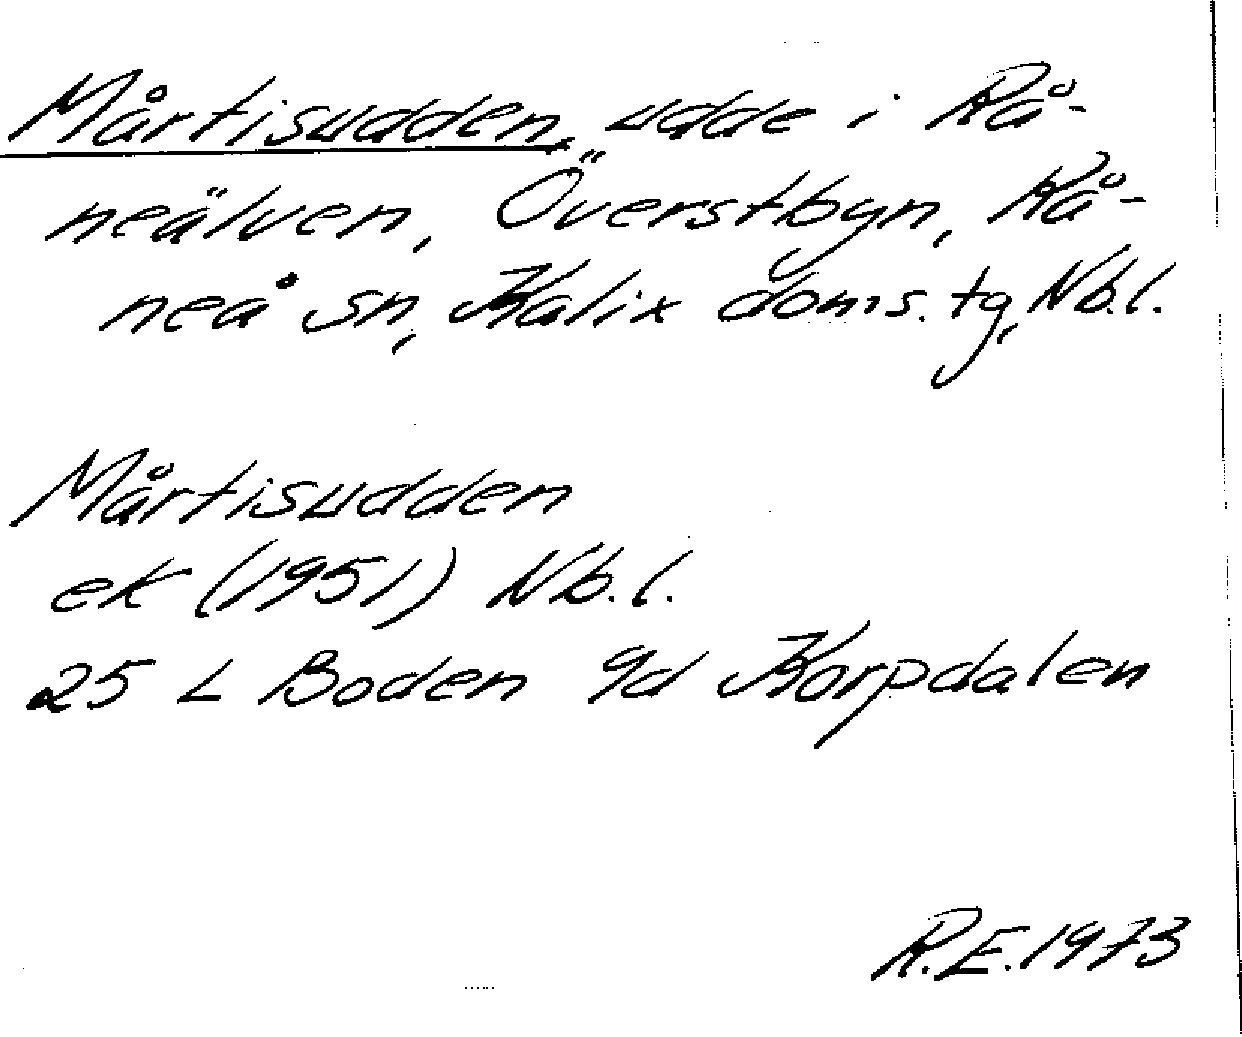 Mårtisudden, udde i Rå-
neälven, Överstbyn, Rå-
neå sn, Kalix doms. tg, Nb.l.
Mårtisudden
ek (1951) Nb.l.
25 L Boden 9d Korpdalen
R.E. 1973